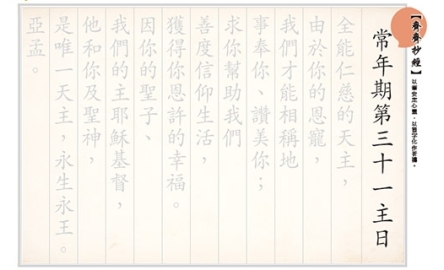 【齊齊抄經】
常年期第三十一主日
全能仁慈的天主，
由於你的恩寵，
我們才能相稱地
事奉你、讚美你；
求你幫助我們
善度信仰生活，
獲得你恩許的幸福。
因你的聖子、
我們的主耶穌基督，
他和你及聖神，
是唯一天主，永生永王。
亞孟。